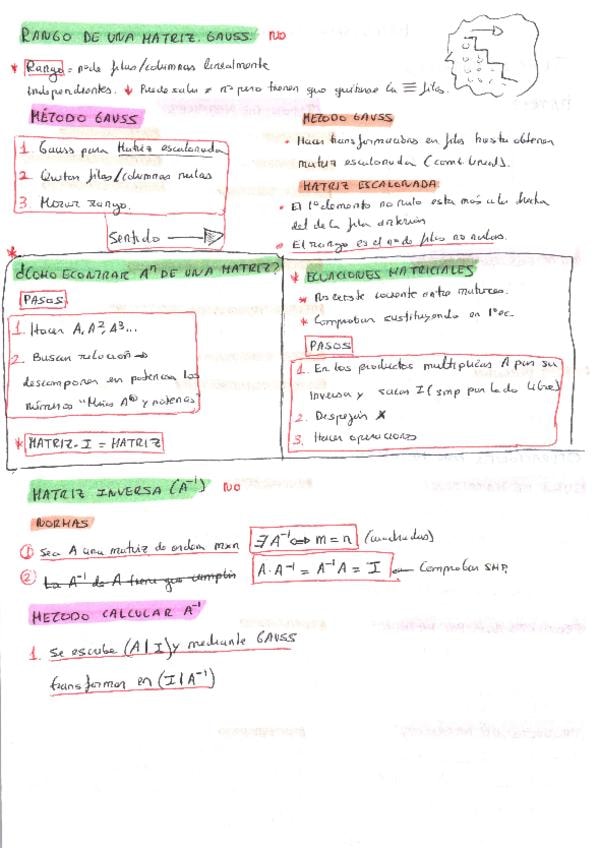 RANGO DE UNA MATRIZ. GAUSS. NO
* Rango = nº de filas/columnas linealmente
independientes. ↓ Puede salir ≠ nº pero tienen que quitarse la ≡ filas.
MÉTODO GAUSS
1. Gauss para Matriz escalonada
2. Quitar filas/columnas nulas
3. Mirar rango.
Sentido →
METODO GAUSS
• Hacer transformaciones en filas hasta obtener
matriz escalonada (comb. lineal).
MATRIZ ESCALONADA:
• El 1º elemento no nulo esta más a la derecha
del de la fila anterior
• El rango es el nº de filas no nulas.
* ¿COMO ECONTRAR Aⁿ DE UNA MATRIZ?
PASOS
1. Hacer A, A², A³...
2. Buscar relación →
descomponer en potencia los
números
* MATRIZ · I = MATRIZ
* ECUACIONES MATRICIALES
* No existe cociente entre matrices.
* Comprobar sustituyendo en 1º ec.
PASOS
1. En los productos multiplicar A por su
inversa y sacar I (smp por lado libre)
2. Despejar X
3. Hacer operaciones
MATRIZ INVERSA (A⁻¹) NO
NORMAS
① Sea A una matriz de orden mxn ∃ A⁻¹ ⇔ m = n (cuadradas)
② La A⁻¹ de A tiene que cumplir A · A⁻¹ = A⁻¹A = I ← Comprobar SMP.
METODO CALCULAR A⁻¹
1. Se escribe (A | I) y mediante GAUSS
transformar en (I | A⁻¹)